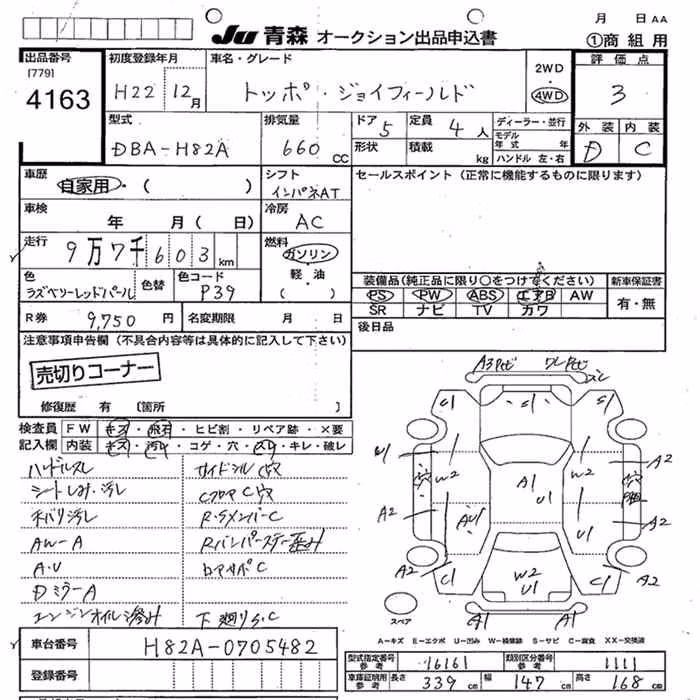 JU 青森 オークション出品申込書
月 日 AA
①商組用
出品番号
[779]
4163
初度登録年月
H22 12月
車名・グレード
トッポ・ジョイフィールド
2WD
・
4WD
評価点
3
型式
DBA-H82A
排気量
660 CC
ドア 5
定員 4 人
形状
積載 kg
ディーラー・並行
モデル年式 年
ハンドル 左・右
外装 内装
D C
車歴
自家用・( )
シフト
インパネAT
セールスポイント (正常に機能するものに限ります)
車検
年 月 ( 日)
冷房
AC
走行
9万7千603 km
燃料
ガソリン・
軽油
( )
色
ラズベリーレッドパール
色替
色コード
P39
装備品(純正品に限り○をつけてください)
PS PW ABS エアB AW
SR ナビ TV カワ
新車保証書
有・無
R券 9,750 円
名変期限 月 日
後日品
注意事項申告欄 (不具合内容等は具体的に記入して下さい)
売切りコーナー
修復歴 有 〔箇所 〕
検査員記入欄
FW キズ・飛石・ヒビ割・リペア跡・×要
内装 キズ・汚れ・コゲ・穴・スレ・キレ・破レ
ハンドルスレ
シートしみ・汚レ
サイドシル C穴
CフロアC穴
内バリ汚レ
R-SメンバーC
AW-A
A・U
DミラーA
エンジンオイル滲み
下廻りS・C
車台番号 H82A-0705482
登録番号
A1
U1
A2
W2
U1
AU1
C1
W2
U1
A1
スペア
A-キズ E-エクボ U-凹み W-補修跡 S-サビ C-腐食 XX-交換済
型式指定番号 参考 16161
類別区分番号 参考 1111
車庫証明用 参考 長さ 339 cm 幅 147 cm 高さ 168 cm